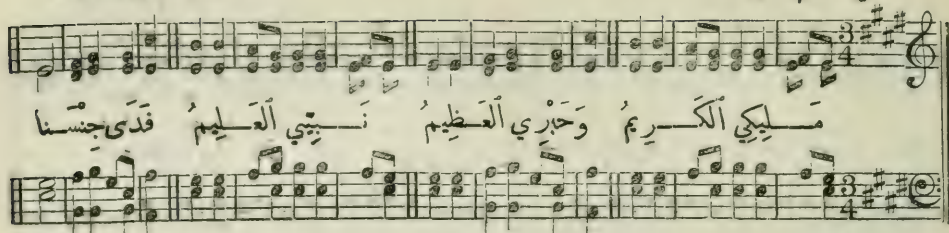 مَــلِيكِي ٱلْكَـــرِيمُ وَحَبْرِي ٱلْعَـظِيمُ نَـــبِيِّي ٱلْعَـــلِيمُ فَدَى جِنْسَــنا